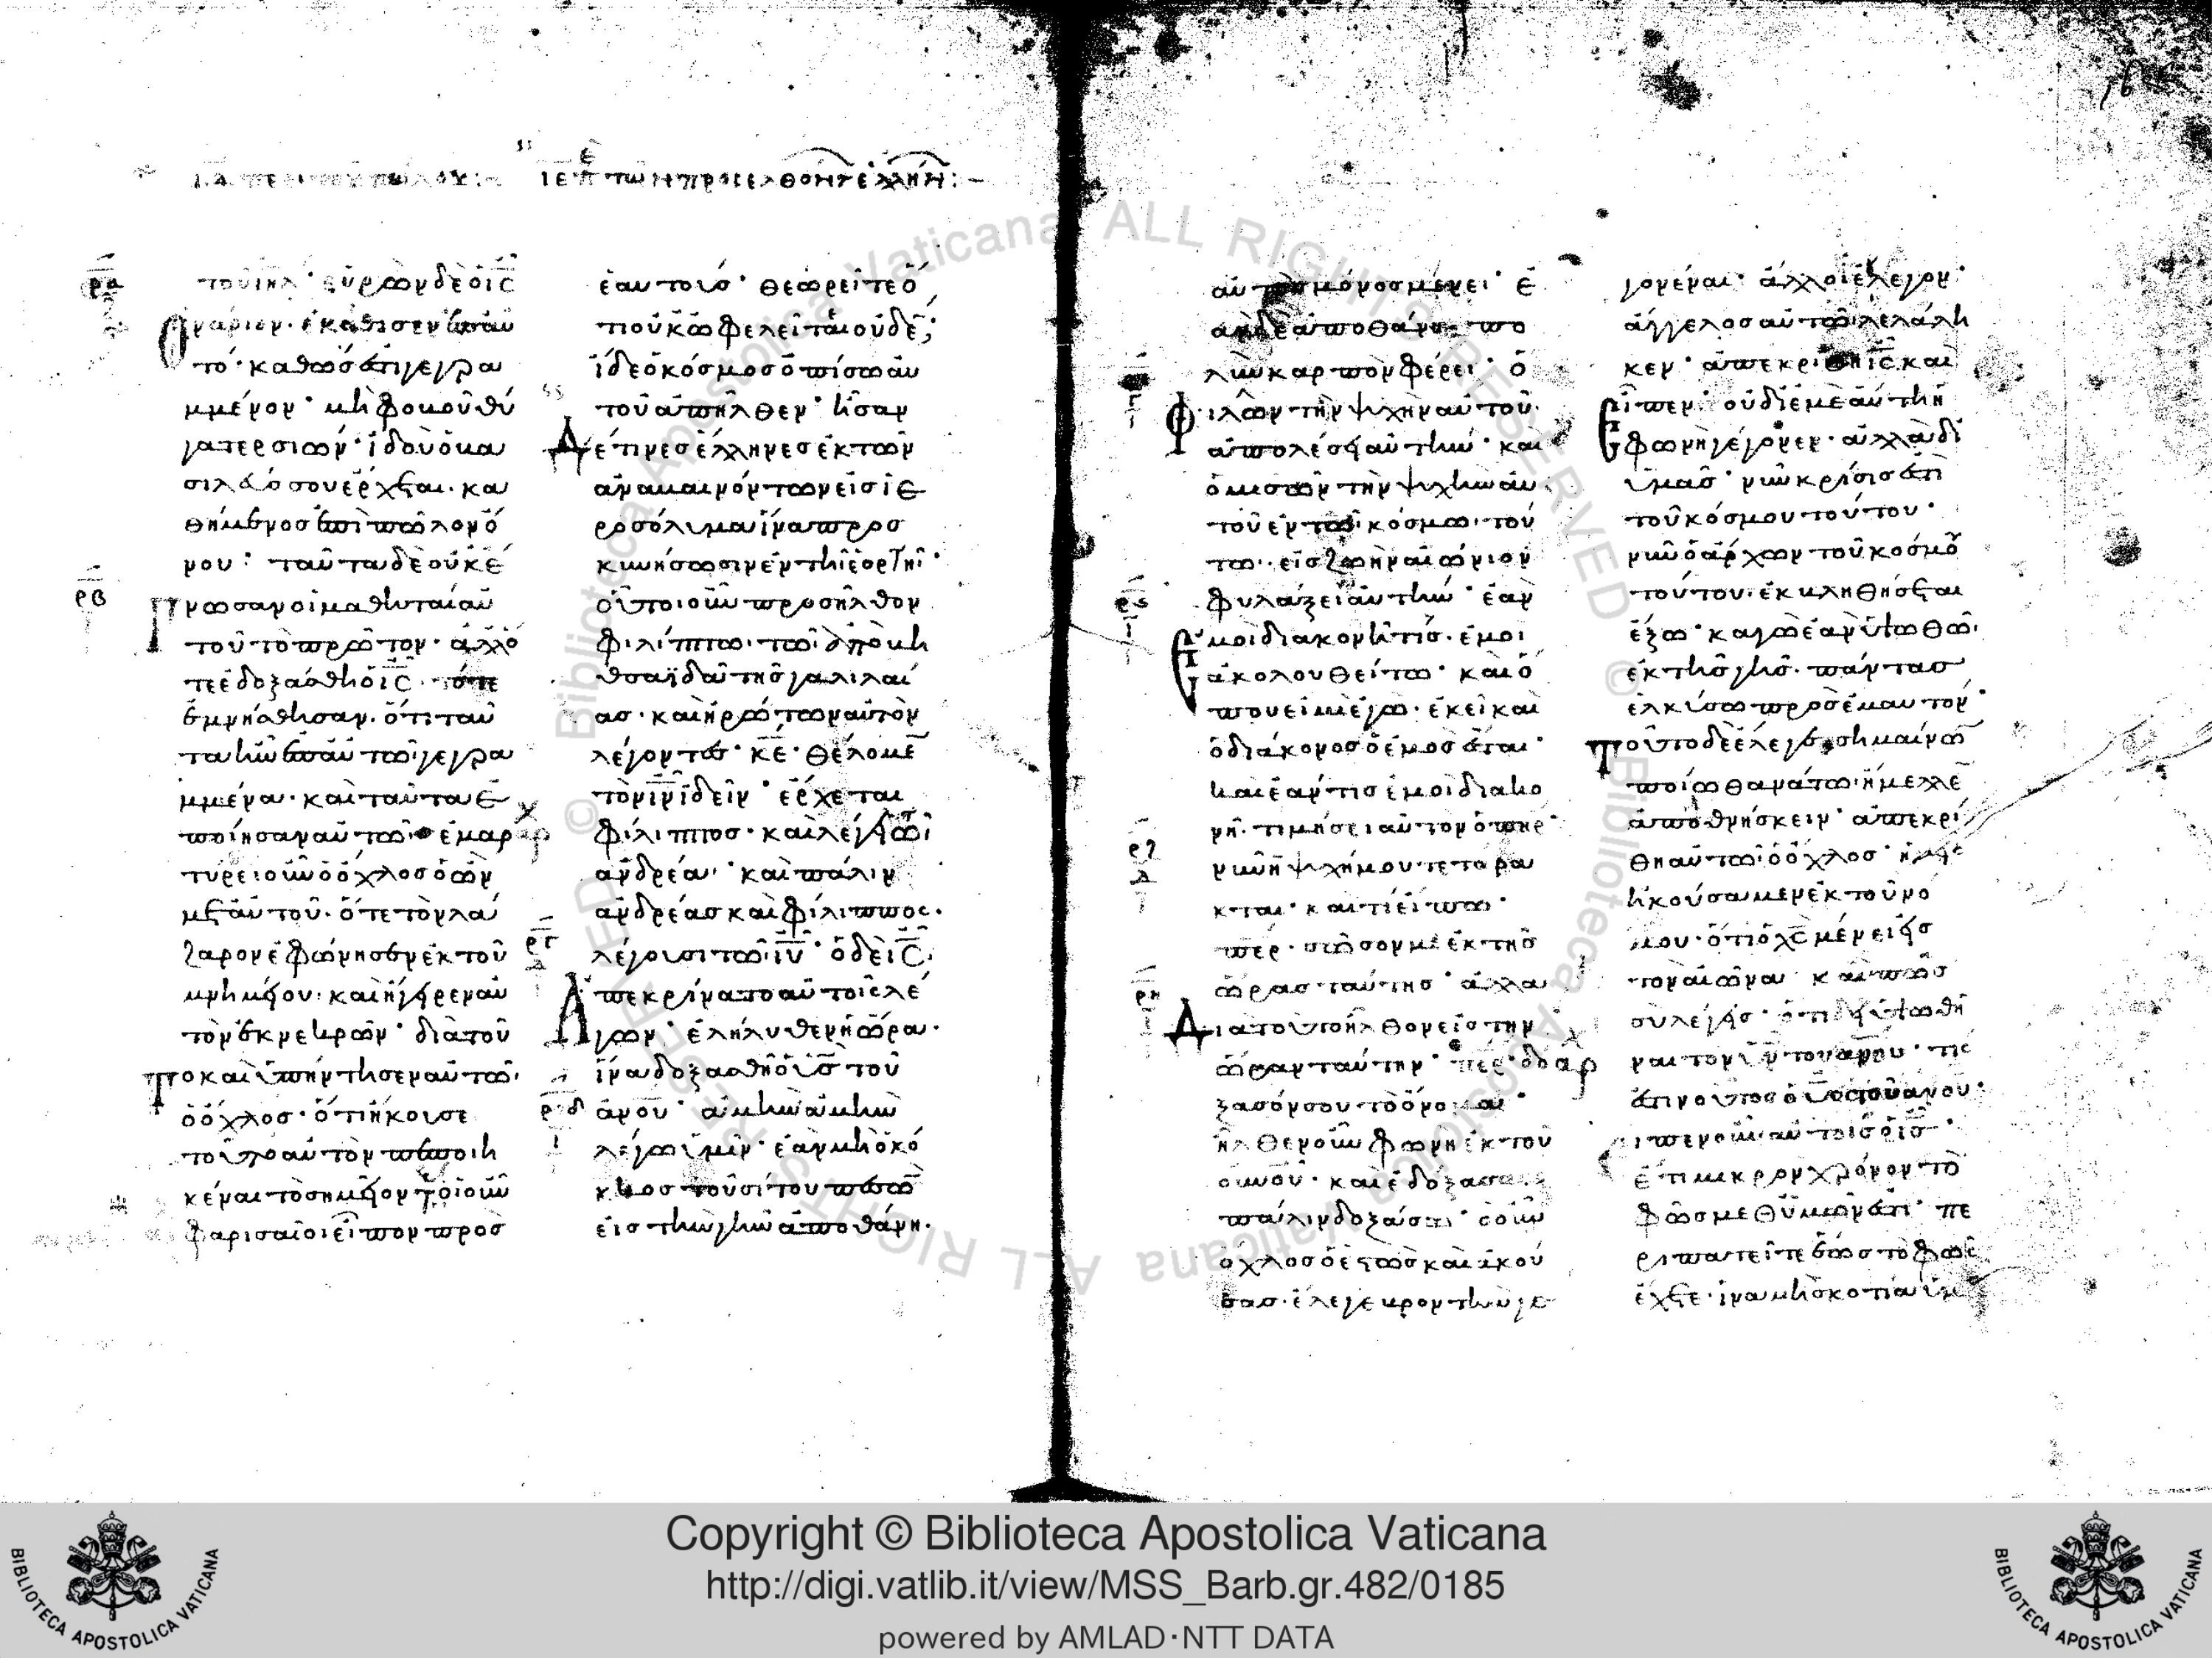 ΙΔ ΠΕΡΙ ΤΟΥ ΠΩΛΟΥ:– ΙΕ Π ΤΩΝ ΠΡΟΣΕΛΘΟΝΤ ΕΛΛΗΝ:–
ρα
τοῦ ιηλ· εὑρὼν δὲ ὁ ις
ὀνάριον· ἐκάθισεν ἐπ αὐ
τό· καθώς ἐστι γεγρα
μμένον· μὴ φοβοῦ θύ
γατερ σιών· ἰδοὺ ὁ βα
σιλεύς σου ἔρχεται· κα
θήμενος ἐπὶ πῶλον ὄ
νου· ταῦτα δὲ οὐκ ἔ
ρβ
γνωσαν οἱ μαθηταὶ αὐ
τοῦ τὸ πρῶτον· ἀλλ ὅ
τε ἐδοξάσθη ὁ ις· τότε
ἐμνήσθησαν· ὅτι ταῦ
τα ἦν ἐπ αὐτῶ γεγρα
μμένα· καὶ ταῦτα ἐ
ποίησαν αὐτῶ· ἐμαρ
τύρει οὖν ὁ ὄχλος ὁ ὢν
μετ αὐτοῦ· ὅτε τὸν λά
ζαρον ἐφώνησεν ἐκ τοῦ
μνημείου· καὶ ἤγειρεν αὐ
τὸν ἐκ νεκρῶν· διὰ τοῦ
το καὶ ὑπήντησεν αὐτῶ·
ὁ ὄχλος· ὅτι ἤκουσε
τοῦτο αὐτὸν πεποιη
κέναι τὸ σημεῖον· οἱ οὖν
φαρισαῖοι εἶπον προς
ἑαυτούς· θεωρεῖτε ὅ
τι οὐκ ὠφελεῖται οὐδέ;
ἴδε ὁ κόσμος ὀπίσω αὐ
τοῦ ἀπῆλθεν· ἦσαν
δέ τινες ἕλληνες ἐκ τῶν
ἀναβαινόντων εἰς ἱε
ροσόλυμα ἵνα προς
κυνήσωσιν ἐν τῆ ἑορτῆ·
οὗτοι οὖν προσῆλθον
φιλίππω· τῶ ἀπὸ βη
θσαϊδὰ τῆς γαλιλαί
ας· καὶ ἠρώτων αὐτὸν
λέγοντες· κε· θέλομεν
τὸν ιν ἰδεῖν· ἔρχεται
φίλιππος· καὶ λέγει τῶ
ἀνδρέα· καὶ πάλιν
ἀνδρέας καὶ φίλιππος·
ργ
λέγουσι τῶ ιυ· ὁ δὲ ις·
ἀπεκρίνατο αὐτοῖς λέ
γων· ἐλήλυθεν ἡ ὥρα·
ἵνα δοξασθῆ ὁ υς τοῦ
ρδ
ανου· ἀμὴν ἀμὴν
λέγω ὑμῖν· ἐὰν μὴ ὁ κό
κκος τοῦ σίτου πεσὼν
εἰς τὴν γῆν ἀποθάνη·
αὐτὸς μόνος μένει· ἐ
ὰν δὲ ἀποθάνη πο
λὺν καρπὸν φέρει· ὁ
φιλῶν τὴν ψυχὴν αὐτοῦ·
ἀπολέσει αὐτὴν· καὶ
ὁ μισῶν τὴν ψυχὴν αὐ
τοῦ ἐν τῶ κόσμω τού
τω· εἰς ζωὴν αἰώνιον
ρς
φυλάξει αὐτὴν· ἐὰν
ἐμοὶ διακονῆ τίς· ἐμοὶ
ἀκολουθείτω· καὶ ὅ
που εἰμὶ ἐγὼ· ἐκεῖ καὶ
ὁ διάκονος ὁ ἐμος ἔσται·
καὶ ἐάν τις ἐμοὶ διακο
νῆ· τιμήσει αὐτὸν ὁ πηρ·
ρζ
νῦν ἡ ψυχή μου τετάρα
κται· καὶ τί εἴπω·
περ· σῶσόν με ἐκ τῆς
ὥρας ταύτης· ἀλλὰ
ρη
διὰ τοῦτο ἦλθον εἰς τὴν
ὥραν ταύτην· περ δόξ
ασόν σου τὸ ὄνομα·
ἦλθεν οὖν φωνὴ ἐκ τοῦ
οὐνου· καὶ ἐδόξασα
πάλιν δοξάσω· ὁ οὖν
ὄχλος ὁ ἑστὼς καὶ ἀκού
σας· ἔλεγε βροντὴν γε
γονέναι· ἄλλοι ἔλεγον·
ἄγγελος αὐτῶ λελάλη
κεν· ἀπεκρίθη ις καὶ
εἶπεν· οὐ δι ἐμὲ αὕτη ἡ
φωνὴ γέγονεν· ἀλλὰ δι
ὑμᾶς· νῦν κρίσις ἐστὶ
τοῦ κόσμου τούτου·
νῦν ὁ ἄρχων τοῦ κόσμου
τούτου· ἐκβληθήσεται
ἔξω· καγὼ ἐὰν ὑψωθῶ·
ἐκ τῆς γῆς· πάντας
ἑλκύσω πρὸς ἐμαυτόν·
τοῦτο δὲ ἔλεγε· σημαίνων
ποίω θανάτω· ἤμελλεν
ἀποθνήσκειν· ἀπεκρί
θη αὐτῶ ὁ ὄχλος· ἡμεῖς
ἠκούσαμεν ἐκ τοῦ νό
μου· ὅτι ὁ χς μένει εἰς
τὸν αἰῶνα· καὶ πῶς
σὺ λέγεις· ὅτι δεῖ ὑψωθῆ
ναι τὸν υν τοῦ ανου· τίς
ἐστιν οὗτος ὁ υς τοῦ ανου·
εἶπεν οὖν αὐτοῖς ὁ ις·
ἔτι μικρὸν χρόνον τὸ
φῶς μεθ ὑμῶν ἐστι· πε
ριπατεῖτε ἕως τὸ φῶς
ἔχετε· ἵνα μὴ σκοτία ὑμ
Copyright © Biblioteca Apostolica Vaticana
http://digi.vatlib.it/view/MSS_Barb.gr.482/0185
powered by AMLAD·NTT DATA
BIBLIOTECA APOSTOLICA VATICANA
BIBLIOTECA APOSTOLICA VATICANA